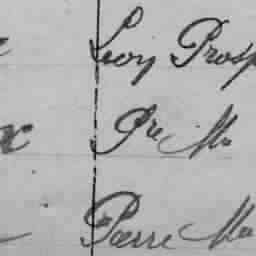 x Leon Prosp
x Pre M
Pierre Ma